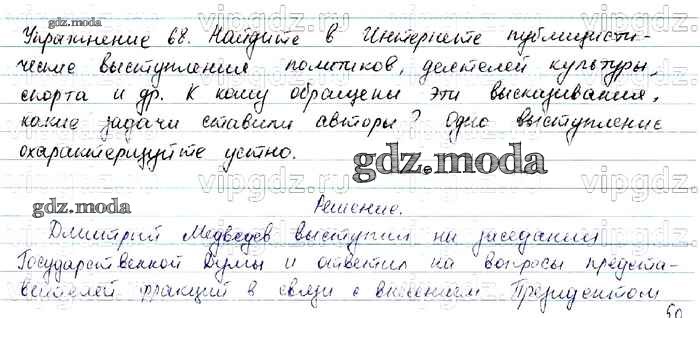 gdz.moda
Упражнение 68. Найдите в Интернете публицисти-
ческие выступления политиков, деятелей культуры,
спорта и др. К кому обращены эти высказывания,
какие задачи ставили авторы? Одно выступление
охарактеризуйте устно.
gdz.moda
gdz.moda
Решение.
Дмитрий Медведев выступил на заседании
Государственной Думы и ответил на вопросы предста-
вителей фракций в связи с внесением Президентом
50